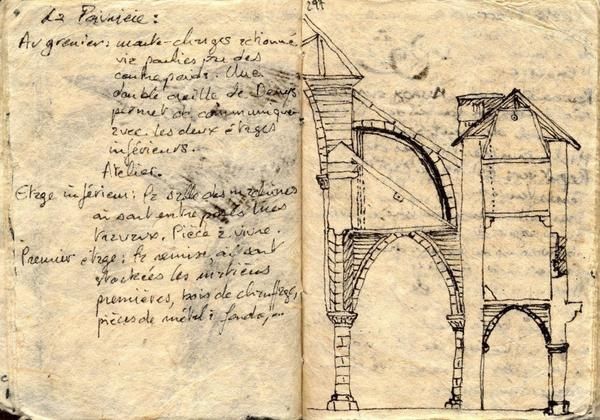 La Poivrière :
Au grenier : monte-charges actionné
via poulies ou des
contrepoids. Une
double oreille de Denys
permet de communiquer
avec les deux étages
inférieurs.
Atelier.
Etage inférieur : la salle des machines
où sont entreposés
travaux. Pièce à vivre.
Premier étage : la remise, où sont
stockées les matières
premières, bois de chauffage,
pièces de métal à fondre,...
297